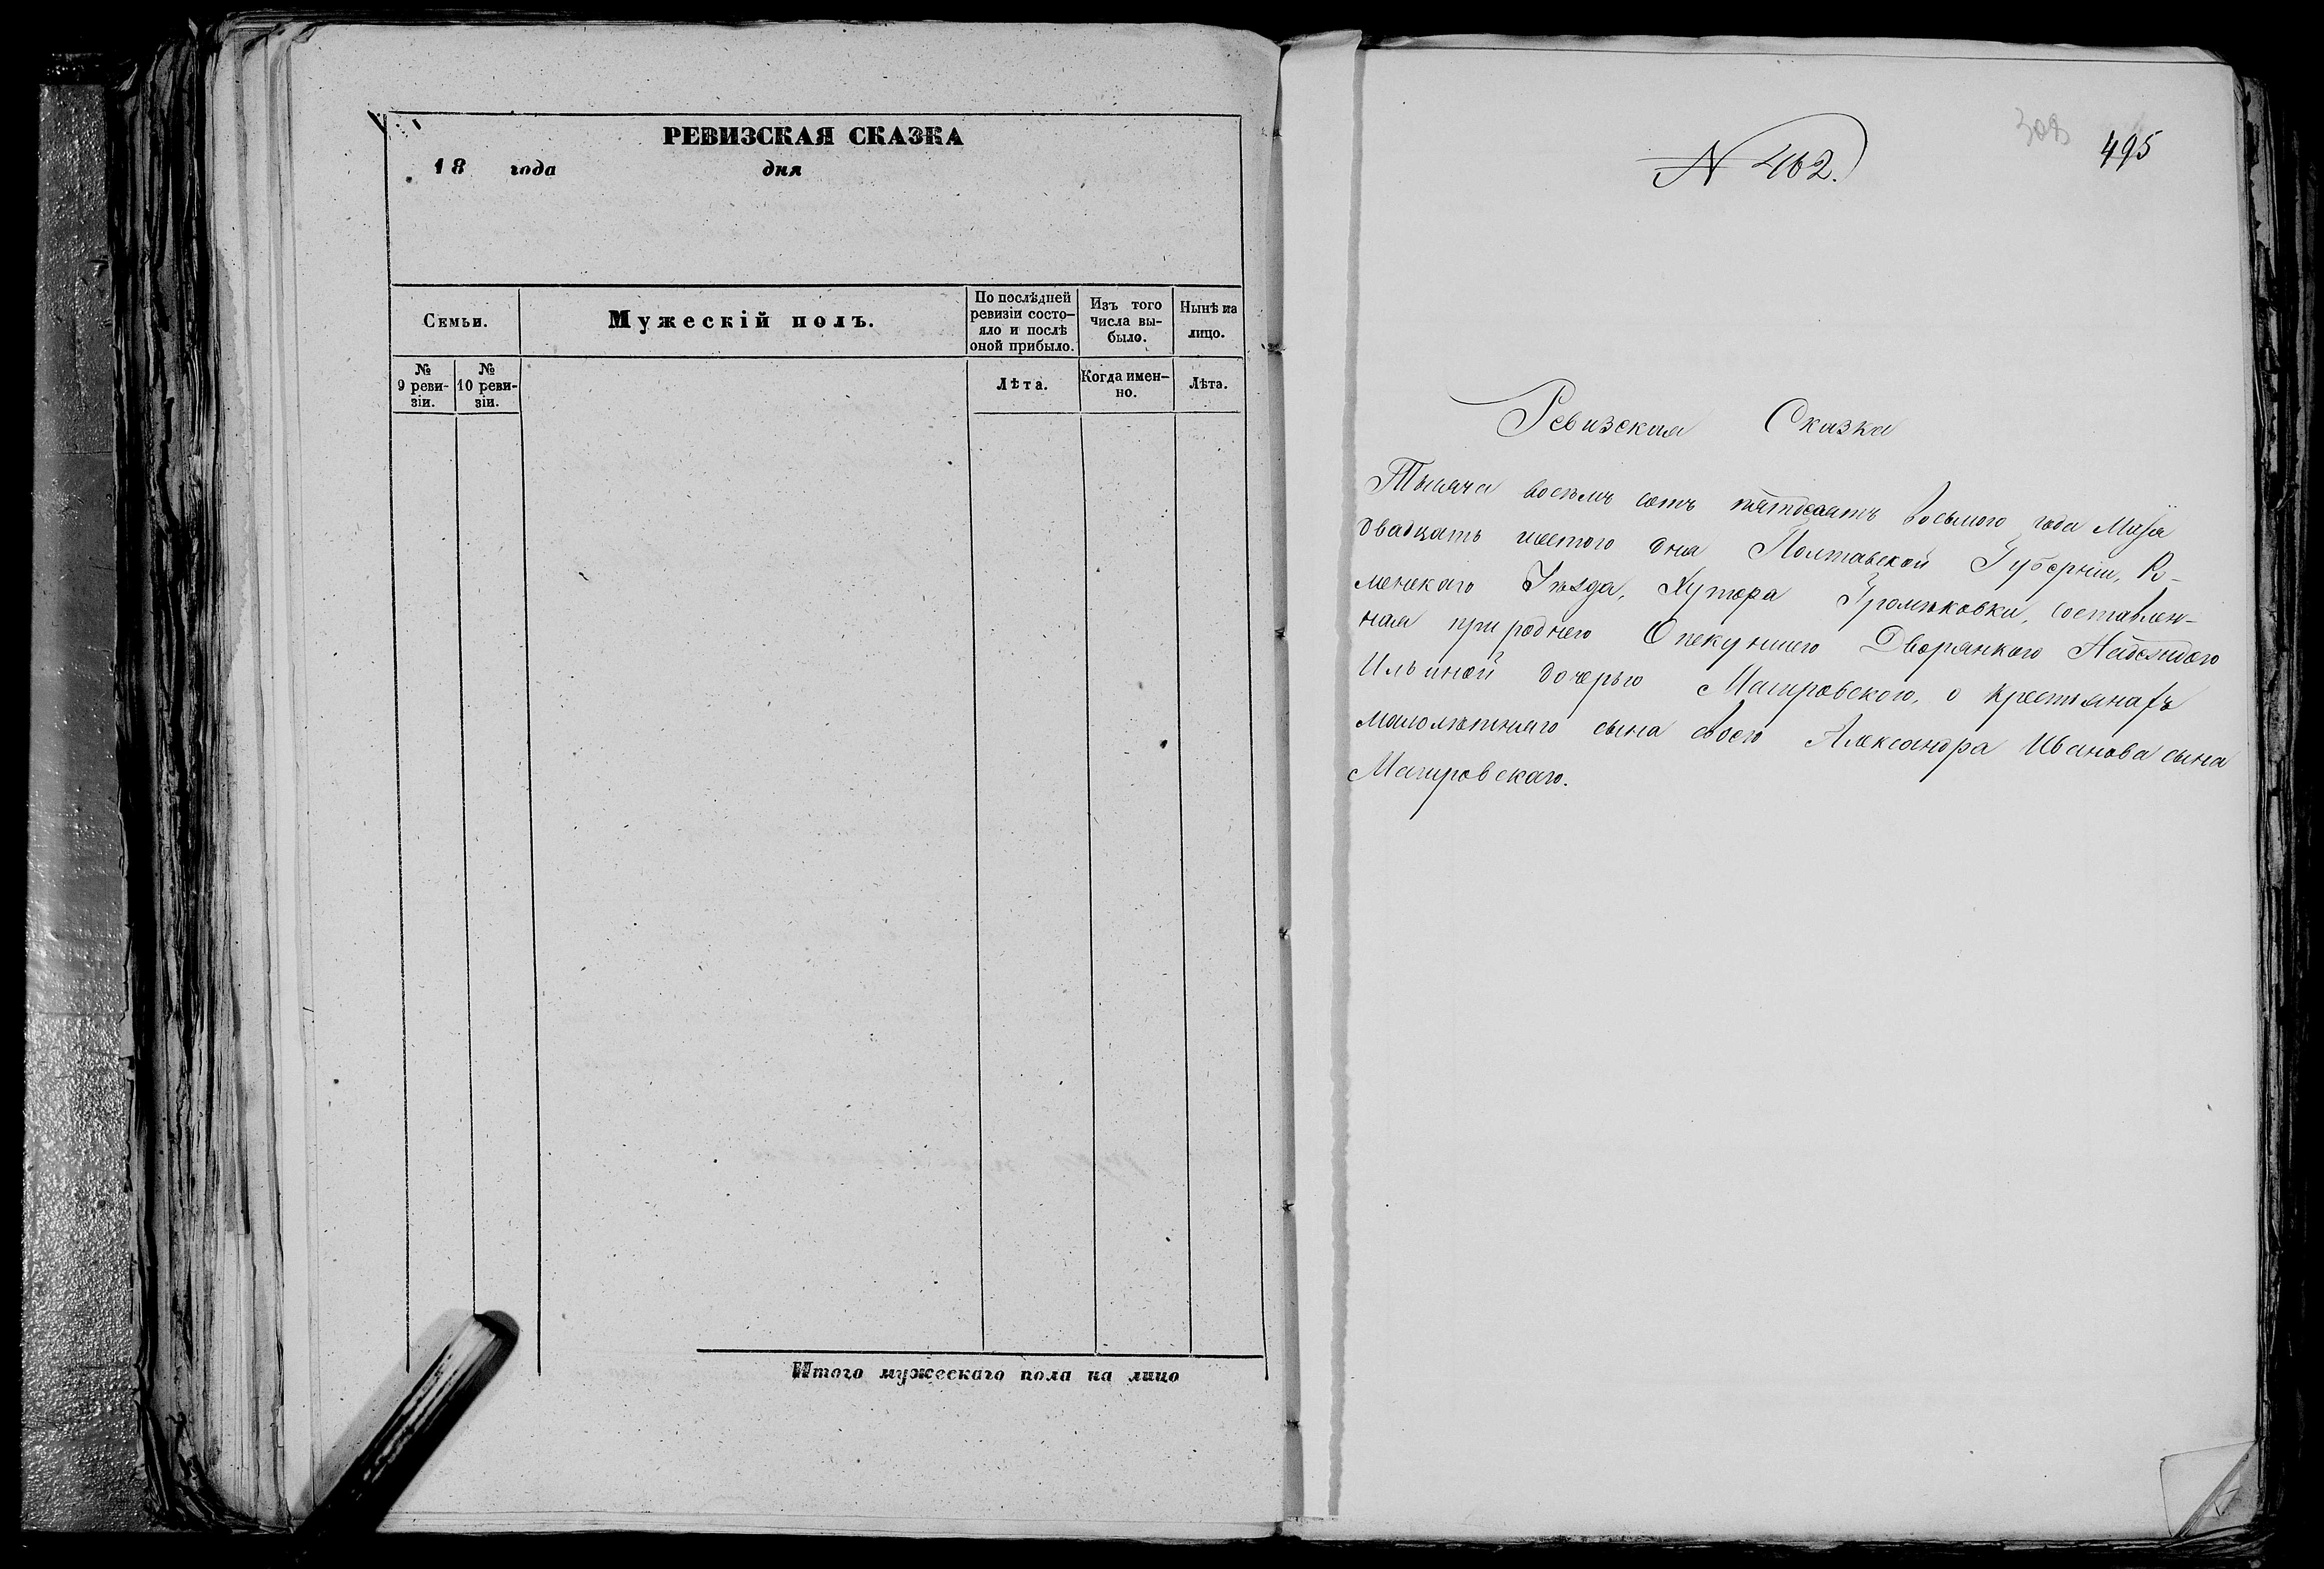 РЕВИЗСКАЯ СКАЗКА
18 года дня
Семьи.
Мужескій полъ.
По послѣдней ревизіи состо-
яло и послѣ
оной прибыло.
Изъ того
числа вы-
было.
Нынѣ на
лицо.
№
9 реви-
зіи.
№
10 реви-
зіи.
Лѣта.
Когда имен-
но.
Лѣта.
Итого мужескаго пола на лицо
308
495
N 462.
Ревизская Сказка
Тысяча восемь сотъ пятдесятъ восьмого года Маія
двадцать шестого дня Полтавской Губерніи, Ро-
менскаго Уѣзда, Хутора Громѣковки, составлен-
ная природнею Опекуншею Дворянкою Надеждою
Ильиной дочерью Магировскою, о крестьянахъ
малолѣтняго сына своего Александра Иванова сына
Магировскаго.